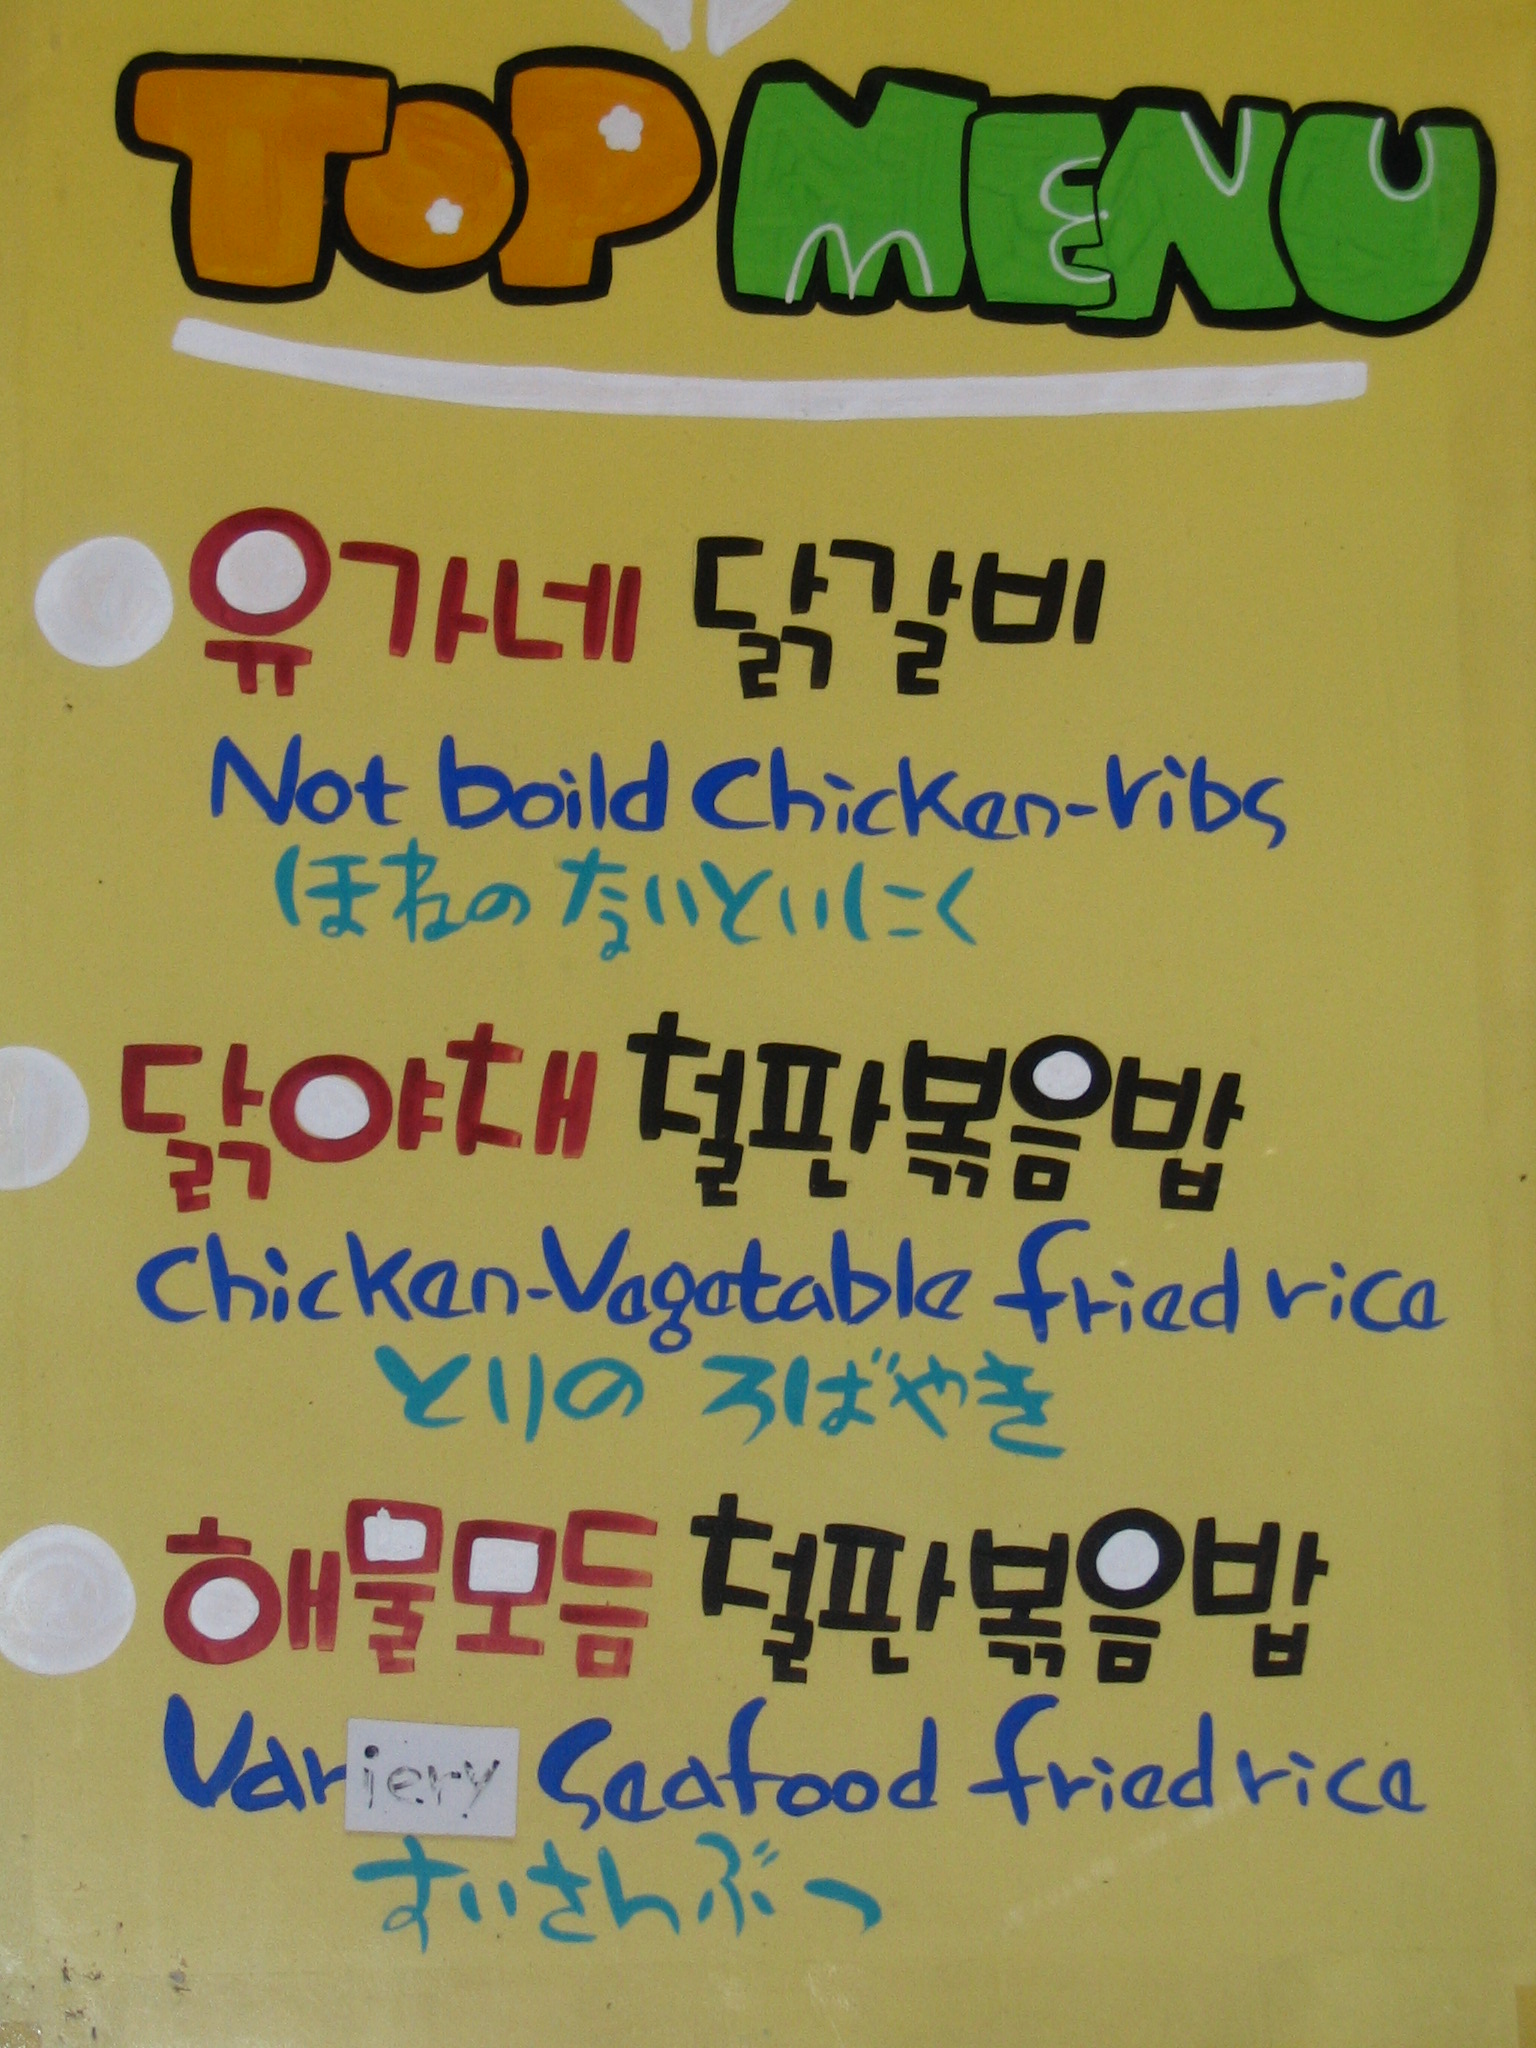 TOP MENU
유가네 닭갈비
Not boild Chicken-ribs
ほねの ないといにく
닭야채 철판볶음밥
Chicken-Vegetable fried rice
とりの ろばやき
해물모듬 철판볶음밥
Variery Seafood fried rice
すいさんぶつ